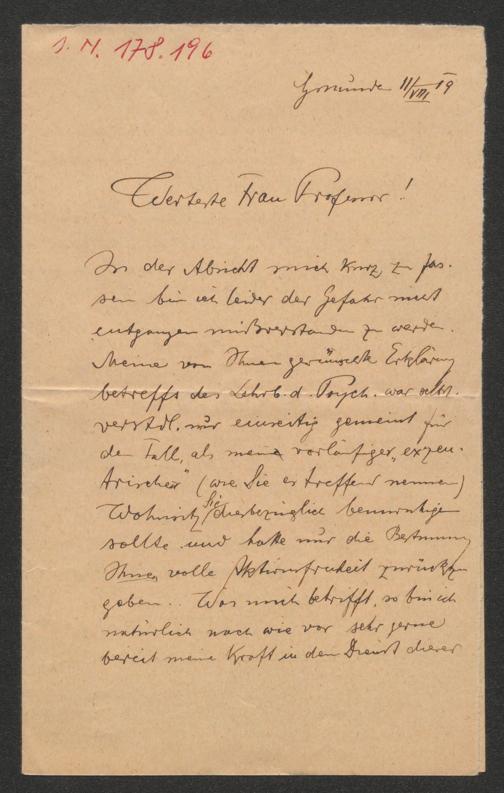 I. N. 178.196
Gmunden 11/VIII 19
Werteste Frau Professor!
In der Absicht mich kurz zu fas-
sen bin ich leider der Gefahr nicht
entgangen mißverstanden zu werden.
Meine von Ihnen gewünschte Erklärung
betreffs des Lehrb. d. Psych. war selbst-
verstdl. nur einseitig gemeint für
den Fall, als mein vorläufiger „exzen-
trischer“ (wie Sie es treffend nennen)
Wohnsitz Sie diesbezüglich beunruhigen
sollte und hatte nur die Bestimmung
Ihnen volle Aktionsfreiheit zurückzu
geben.. Was mich betrifft, so bin ich
natürlich nach wie vor sehr gerne
bereit meine Kraft in den Dienst dieser